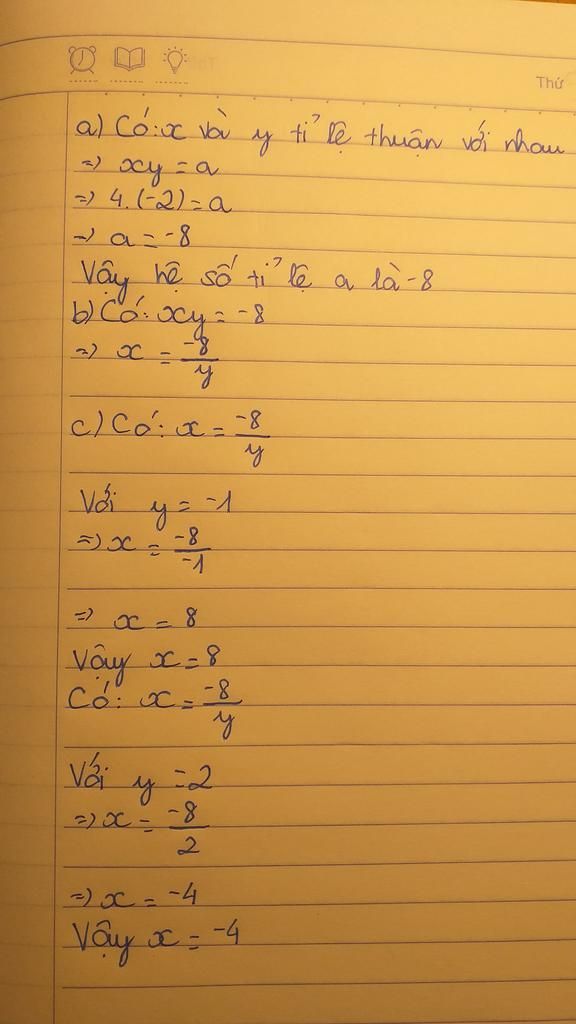 Thứ
a) Có: x và y tỉ lệ thuận với nhau
=> xy = a
=> 4.(-2) = a
=> a = -8
Vậy hệ số tỉ lệ a là -8
b) Có: xy = -8
=> x = -8/y
c) Có: x = -8/y
Với y = -1
=> x = -8/-1
=> x = 8
Vậy x = 8
Có: x = -8/y
Với y = 2
=> x = -8/2
=> x = -4
Vậy x = -4